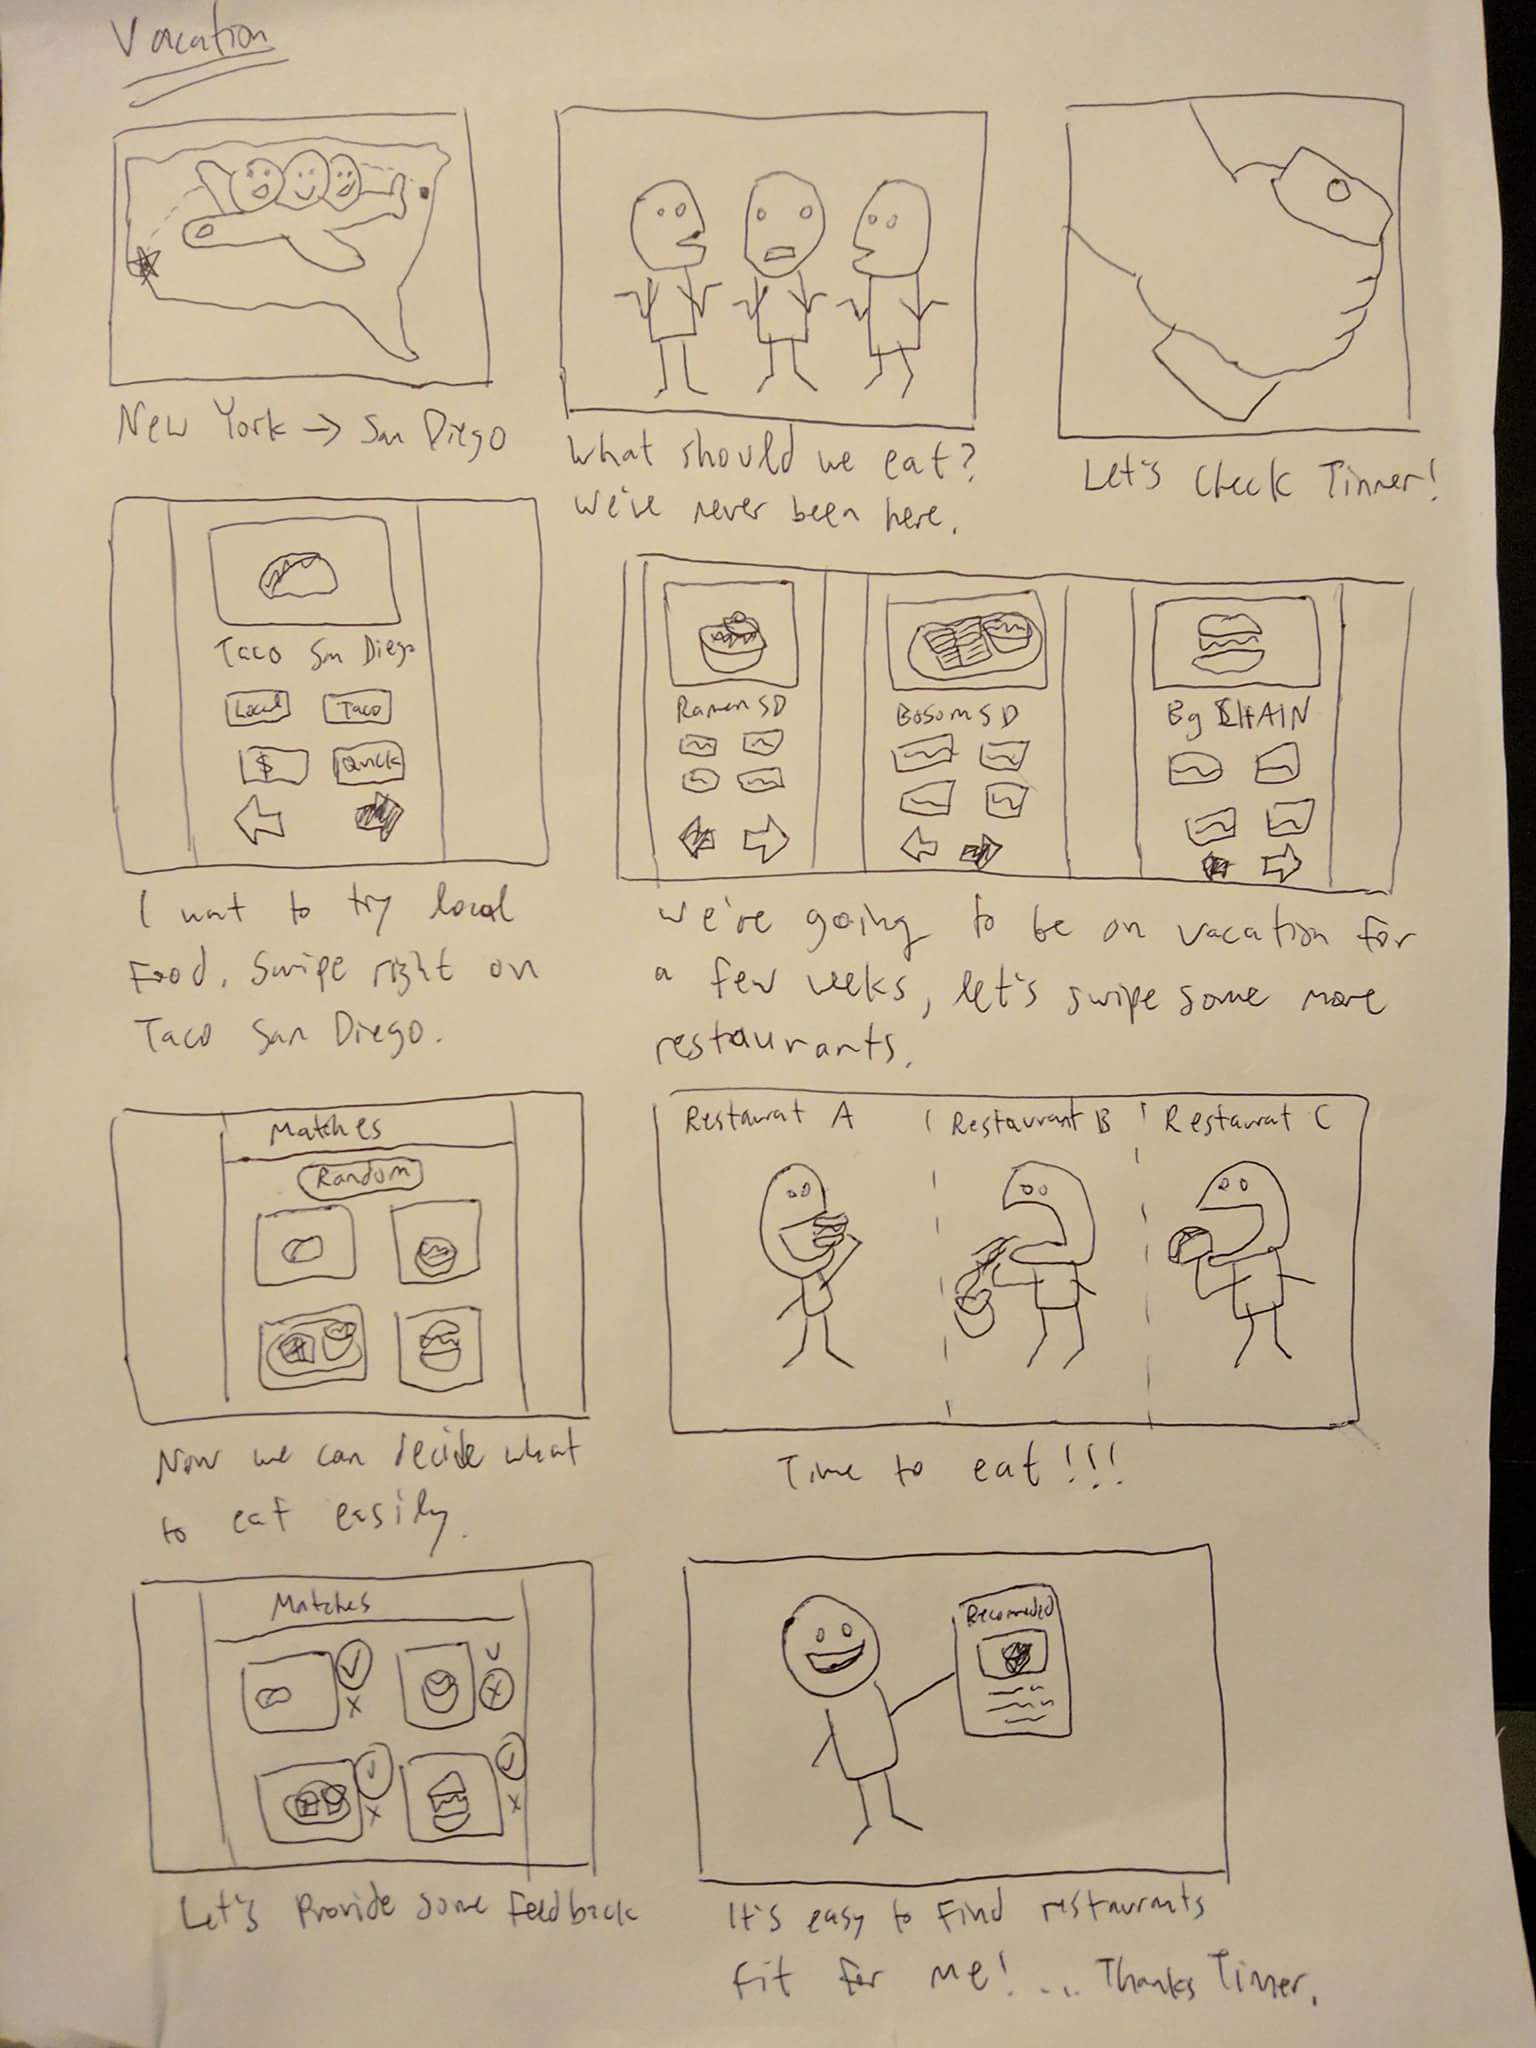 Vacation
New York → San Diego
What should we eat?
We've never been here.
Let's Check Tinner!
Taco San Diego
Local Taco
$ Quick
I want to try local
Food. Swipe right on
Taco San Diego.
Ramen SD
BosomSD
Bg CHAIN
We're going to be on vacation for
a few weeks, let's swipe some more
restaurants.
Matches
Random
Now we can decide what
to eat easily.
Restaurat A
Restaurant B
Restaurat C
Time to eat!!!
Matches
✓ ✓
x x
✓ ✓
x x
Let's Provide some Feedback
Recommeded
It's easy to find restaurants
fit for me! ... Thanks Tinner.